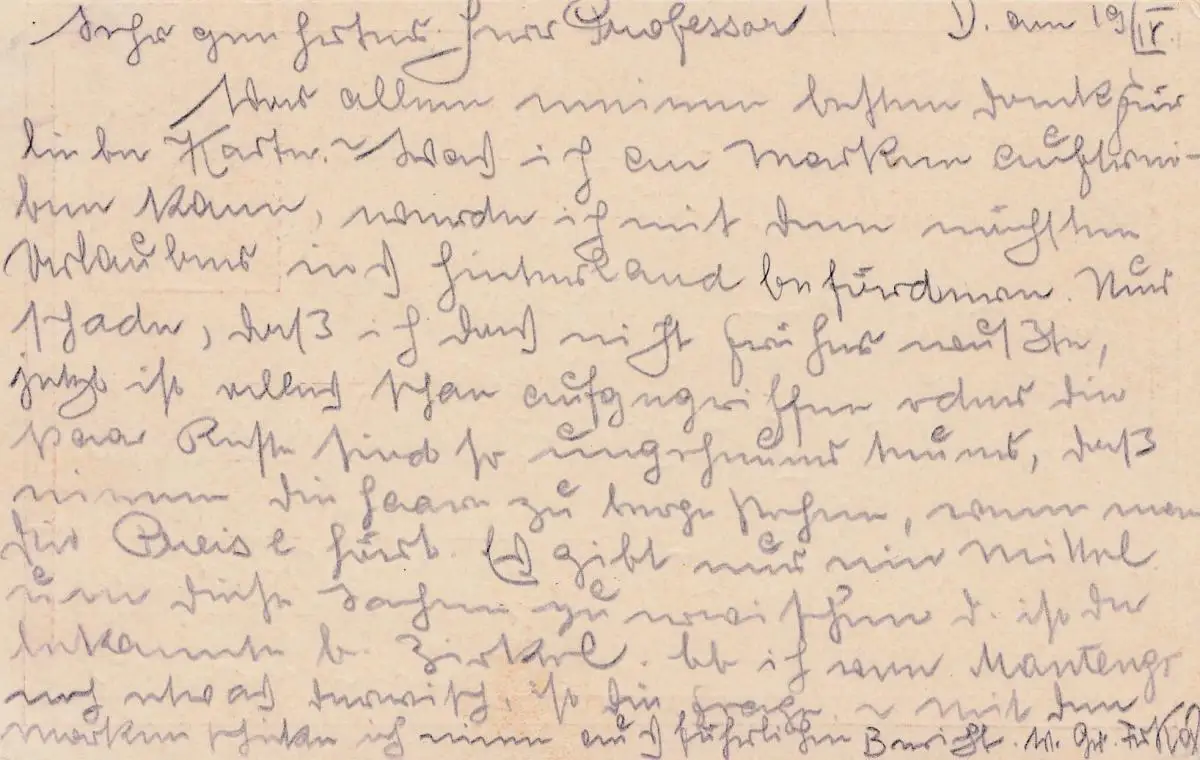 Sehr geehrter Herr Professor! D. am 19/IV.
Vor allem meinen besten Dank für
liebe Karte. Was ich an Marken auftrei-
ben kann, werde ich mit dem nächsten
Urlauber ins Hinterland befördern. Nur
schade, daß ich das nicht früher wußte,
jetzt ist alles schon aufgegriffen oder die
paar Reste sind so ungeheuer teuer, daß
einem die Haare zu berge stehen, wenn man
die Preise hört. Es gibt nur ein Mittel
um diese Sachen zu erwischen d. ist der
bekannte b. Zirkel. Ob ich von Montenegr
noch etwas derwisch, ist die Frage. Mit den
Marken schicke ich einen ausführlichen Bericht.